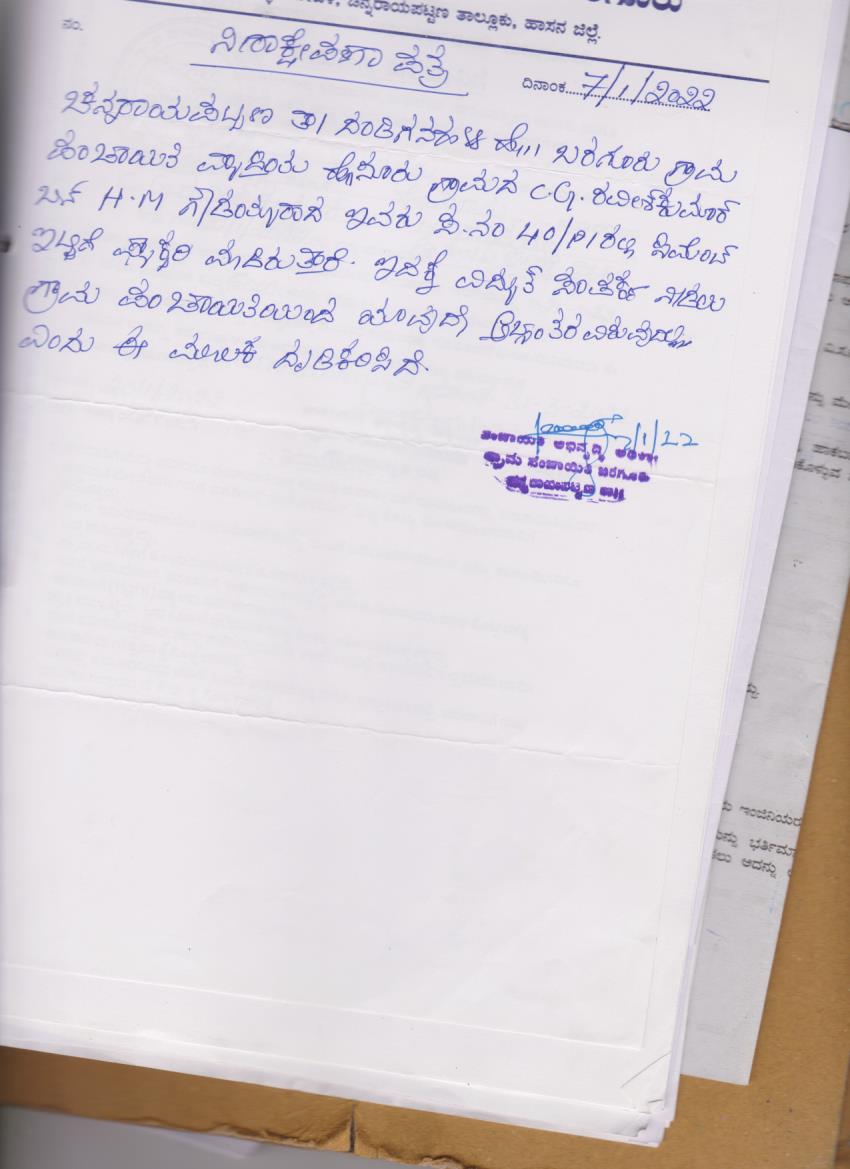 ಚನ್ನರಾಯಪಟ್ಟಣ ತಾಲ್ಲೂಕು, ಹಾಸನ ಜಿಲ್ಲೆ.
ನಂ.
ನಿರಾಕ್ಷೇಪಣಾ ಪತ್ರ
ದಿನಾಂಕ 7/1/2022
ಚನ್ನರಾಯಪಟ್ಟಣ ತಾ| ದಂಡಿಗನಹಳ್ಳಿ ಹೋ|| ಬರಗೂರು ಗ್ರಾಮ
ಪಂಚಾಯಿತಿ ವ್ಯಾಪ್ತಿಯ ಗ್ರಾಮದ C.G. ರವೀಶ್‌ಕುಮಾರ್
ಬಿನ್ H.M ಇವರು ಸ.ನಂ 40/P1ರಲ್ಲಿ ಸಿಮೆಂಟ್
ಇಟ್ಟಿಗೆ ಫ್ಯಾಕ್ಟರಿ ಮಾಡಿರುತ್ತಾರೆ. ಇದಕ್ಕೆ ವಿದ್ಯುತ್ ಸಂಪರ್ಕ ನೀಡಲು
ಗ್ರಾಮ ಪಂಚಾಯಿತಿಯಿಂದ ಯಾವುದೇ ಅಭ್ಯಂತರ ವಿರುವುದಿಲ್ಲ
ಎಂದು ಈ ಮೂಲಕ ದೃಡಿಕರಿಸಿದೆ.
7/1/22
ಪಂಚಾಯಿತಿ ಅಭಿವೃದ್ಧಿ ಅಧಿಕಾರಿ
ಗ್ರಾಮ ಪಂಚಾಯಿತಿ ಬರಗೂರು
ಚನ್ನರಾಯಪಟ್ಟಣ ತಾ||